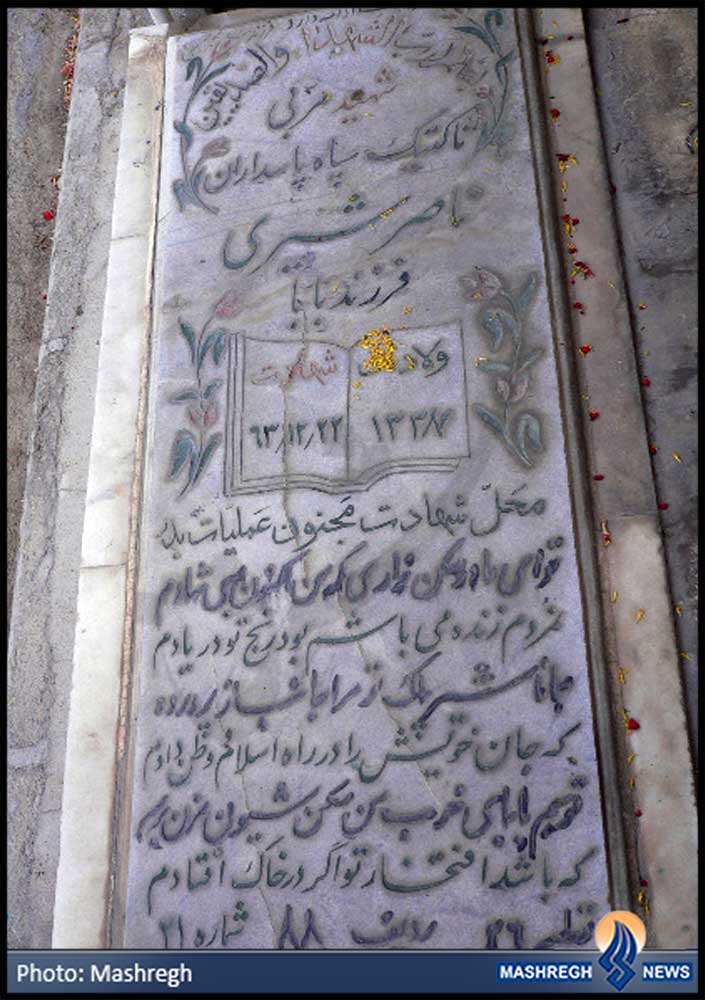 رب الشهداء والصدیقین
شهید مربی
تاکتیک سپاه پاسداران
ناصر شیری
فرزند بابا
ولادت شهادت
۱۳۳۸/۴ ۶۳/۱۲/۲۲
محلّ شهادت مجنون عملیات بدر
تو ای مادر مکن زاری که من اکنون بسی شادم
نمردم زنده می باشم بود رنج تو در یادم
جانا شیر پاک تو مرا جانباز پرورده
که جان خویش را در راه اسلام و وطن دادم
تو هم بابای خوب من مکن شیون مزن بر سر
که باشد افتخار تو اگر در خاک افتادم
قطعه ۲۶ ردیف ۸۸ شماره ۲۱
Photo: Mashregh
MASHREGH NEWS